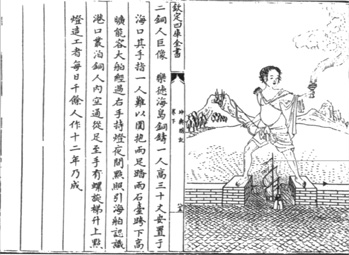 欽定四庫全書
坤輿圖說
卷下
二銅人巨像 樂德海島銅鑄一人高三十丈安置于
海口其手指一人難以圍抱兩足踏兩石臺跨下高
曠能容大舶經過右手持燈夜間點照引海舶認識
港口叢泊銅人內空通從足至手有螺旋梯升上點
燈造工者每日千餘人作十二年乃成